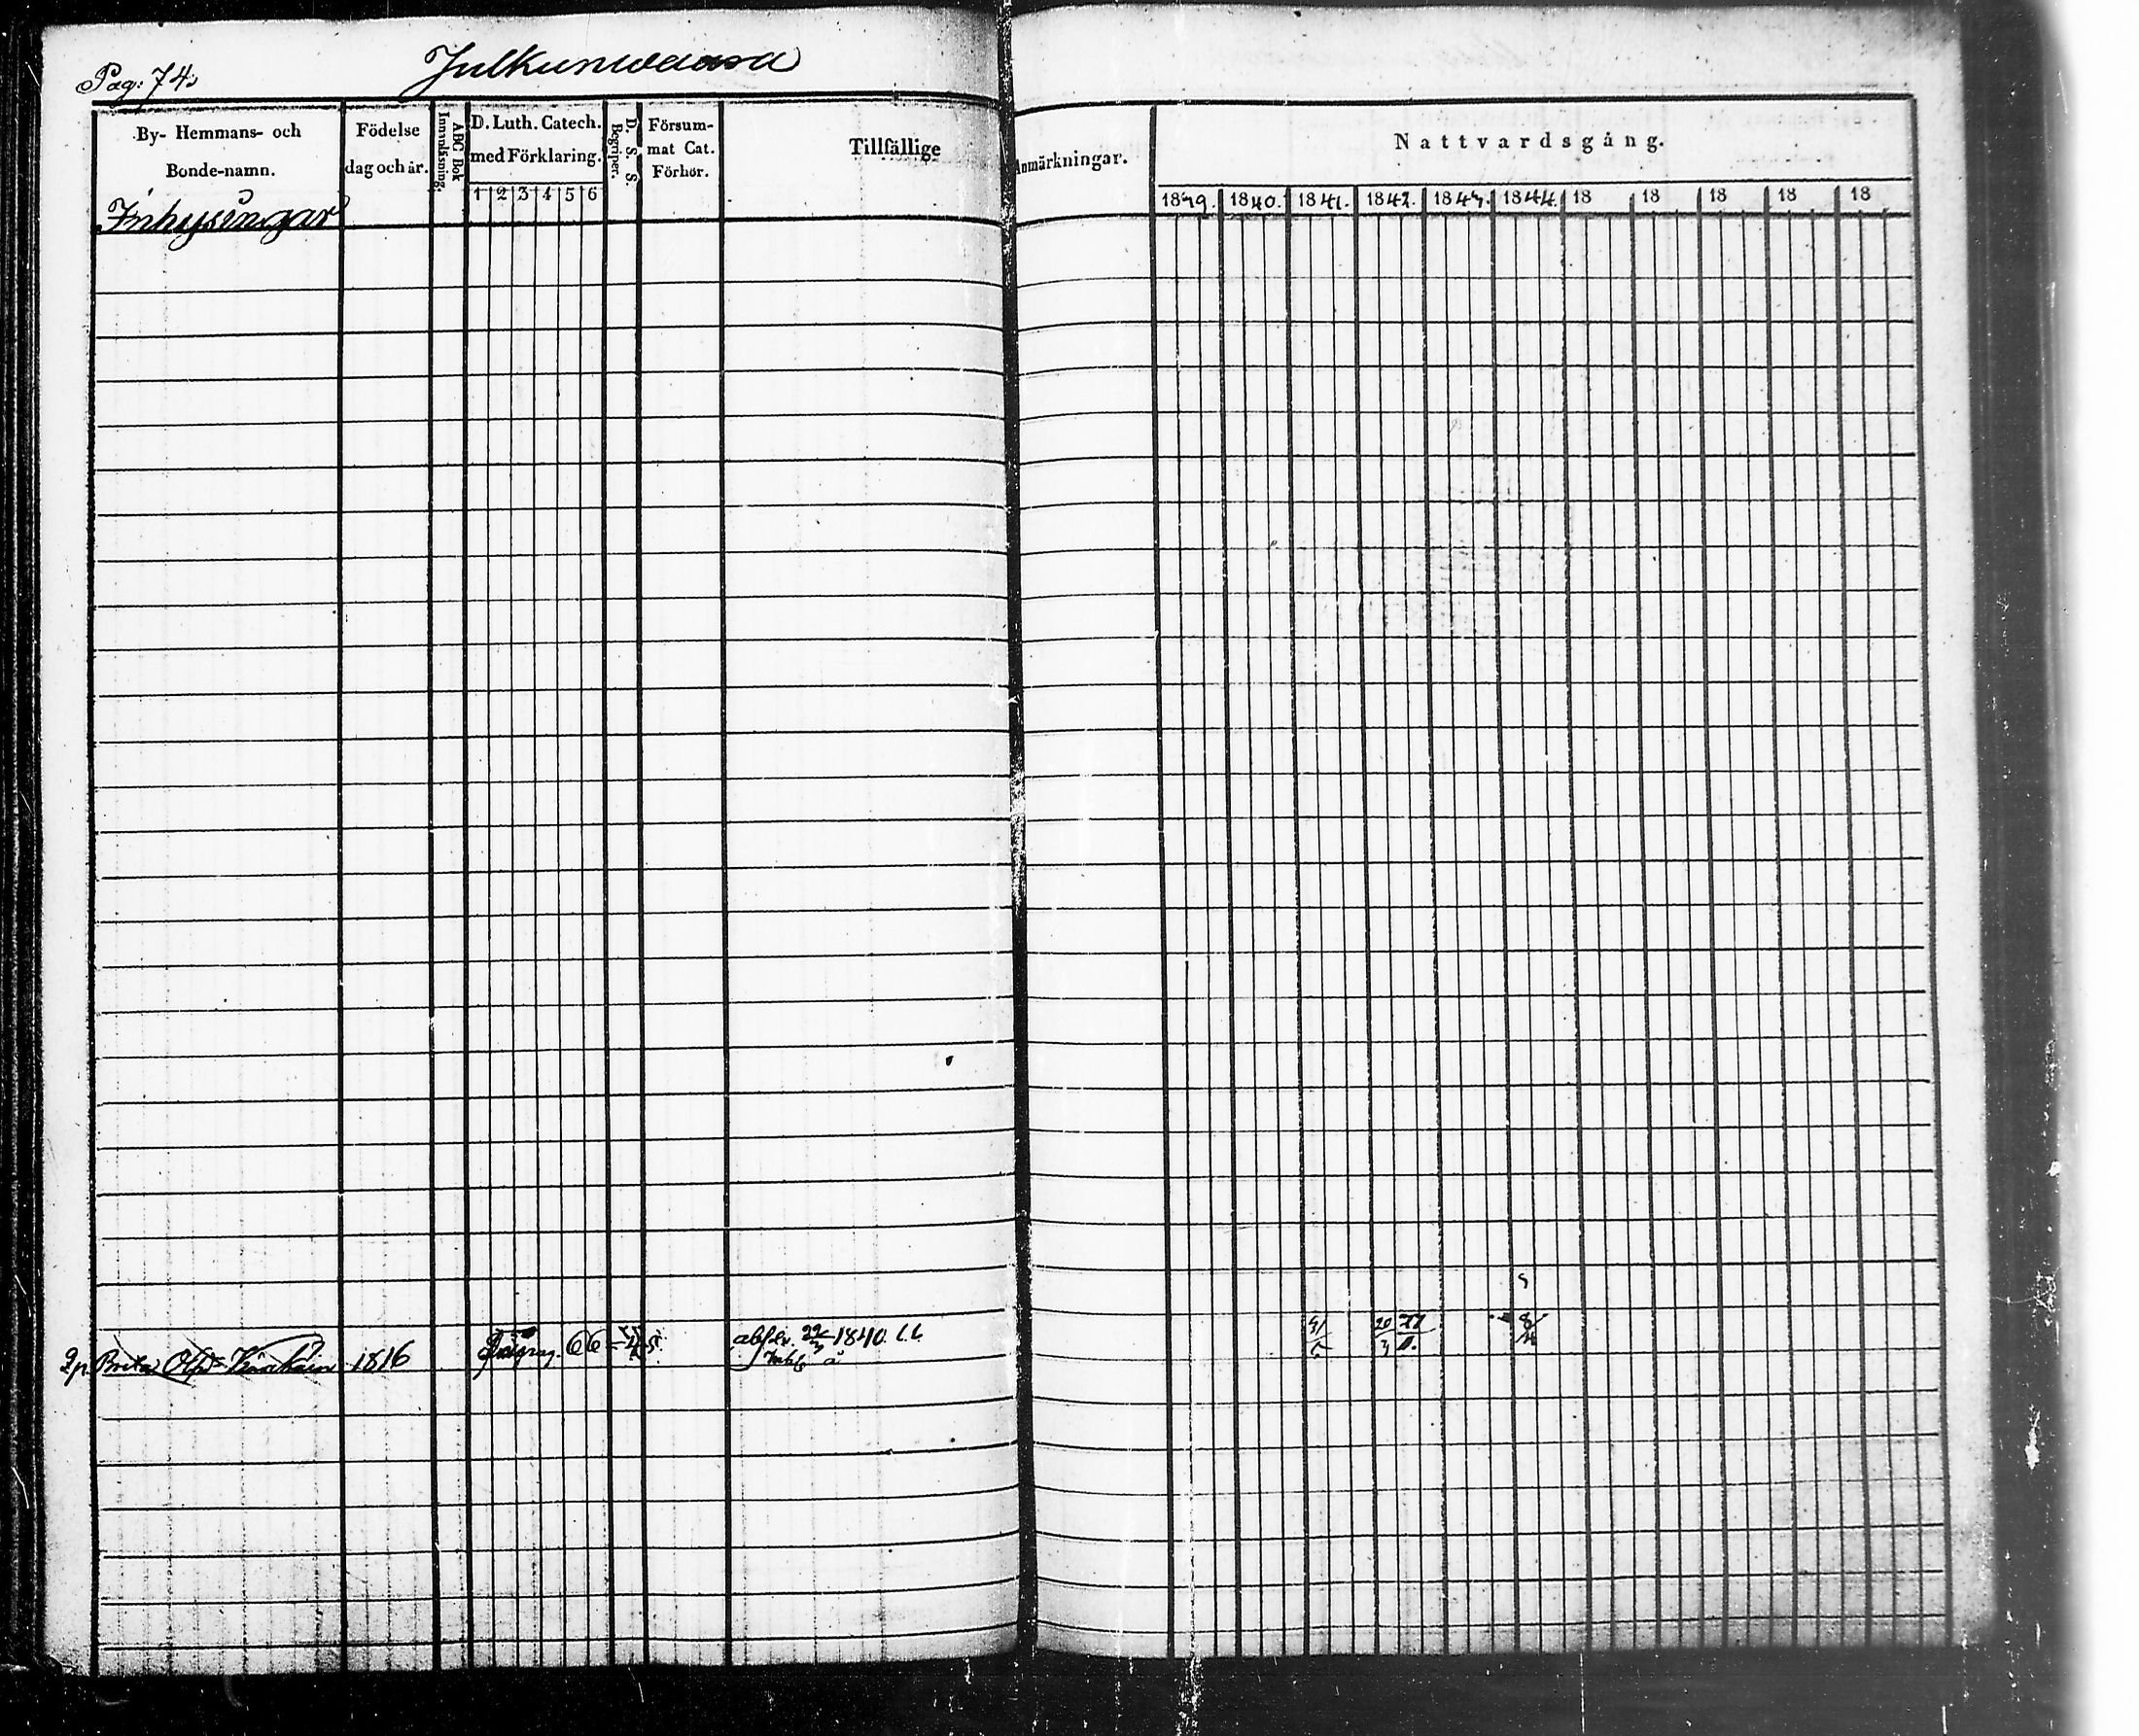 Pag: 74.
Julkunwaara
By- Hemmans- och
Bonde-namn.
Födelse
dag och år.
ABC Bok
Innanläsning.
D. Luth. Catech.
med Förklaring.
1 2 3 4 5 6
D. S. S.
Begriper.
Försum-
mat Cat.
Förhör.
Tillfällige
Anmärkningar.
Nattvardsgång.
1839. 1840. 1841. 1842. 1843. 1844. 18 18 18 18 18
Inhysingar
Brita 1816 66 1840